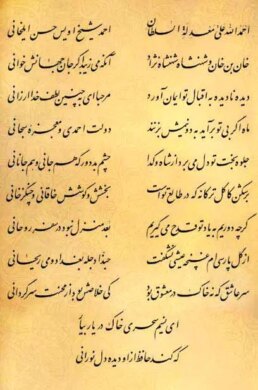 احمد الله علی معدلة السلطان احمد شیخ اویس حسن ایلخانی
خان بن خان و شهنشاه شهنشاه نژاد آنکه می زیبد اگر جان جهانش خوانی
دیده نادیده به اقبال تو ایمان آورد مرحبا ای بچنین لطف خدا ارزانی
ماه اگر بی تو برآید به دو نیمش بزنند دولت احمدی و معجزهٔ سبحانی
جلوه بخت تو دل می برد از شاه و گدا چشم بد دور که هم جانی و هم جانانی
برشکن کاکل ترکانه که در طالع توست بخشش و کوشش خاقانی و چنگزخانی
گرچه دوریم به یاد تو قدح می گیریم بعد منزل نبود در سفر روحانی
از گل پارسیم غنچه عیشی نشکفت حبذا دجله بغداد و می ریحانی
سر عاشق که نه خاک در معشوق بود کی خلاصش بود از محنت سرگردانی
ای نسیم سحری خاک در یار بیار
که کند حافظ از او دیده دل نورانی